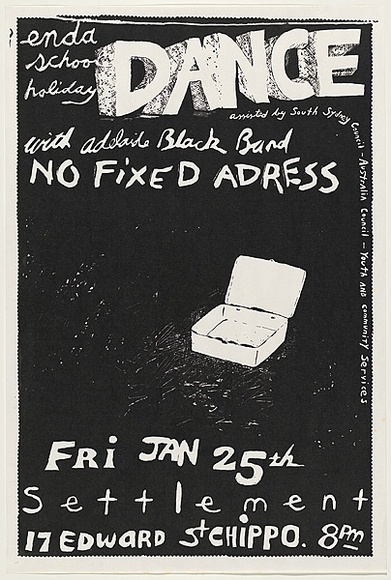 enda
school
holiday
DANCE
assisted by South Sydney Council - Australia Council - Youth and Community Services
with adelaide Black Band
NO FiXED ADRESS
FRi JAN 25th
Settlement
17 EDWARD St CHIPPO. 8PM